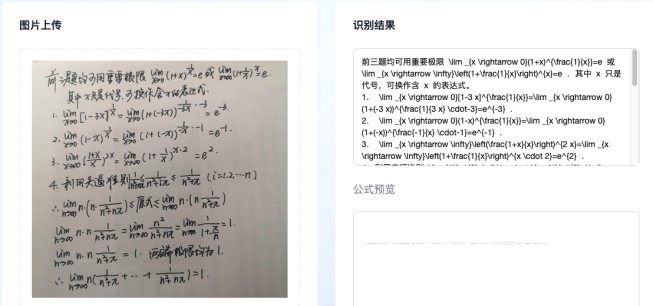 图片上传
识别结果
前三题均可用重要极限 lim x→0 (1+x)^{1/x}=e 或 lim x→∞ (1+1/x)^x=e.
其中x只是代号,可换作含x的表达式.
1. lim x→0 [1-3x]^{1/x} = lim x→0 (1+(-3x))^{1/-3x · -3} = e^{-3}.
2. lim x→0 (1-x)^{1/x} = lim x→0 (1+(-x))^{1/-x · -1} = e^{-1}.
3. lim x→∞ (1+x/x)^{2x} = lim x→∞ (1+1/x)^{x·2} = e^2.
4. 利用夹逼准则 ≤ 1/n²+iπ ≤ 1/n²+π (i=1,2,…n)
∴ lim n→∞ n·(n·1/n²+nπ) ≤ 原式 ≤ lim n→∞ n·(n·1/n²+π)
lim n→∞ n·n 1/n²+nπ = lim n→∞ n²/n²+nπ = lim n→∞ 1/1+π/n = 1.
lim n→∞ n·n 1/n²+π = 1. 两端极限均为1.
∴ lim n→∞ n(1/n²+π + ⋯ + 1/n²+nπ) = 1.
前三题均可用重要极限 \lim _{x \rightarrow 0}(1+x)^{\frac{1}{x}}=e 或
\lim _{x \rightarrow \infty}\left(1+\frac{1}{x}\right)^{x}=e . 其中 x 只是
代号,可换作含 x 的表达式。
1. \lim _{x \rightarrow 0}[1-3 x]^{\frac{1}{x}}=\lim _{x \rightarrow 0}
(1+(-3 x))^{\frac{1}{3 x} \cdot-3}=e^{-3} .
2. \lim _{x \rightarrow 0}(1-x)^{\frac{1}{x}}=\lim _{x \rightarrow 0}
(1+(-x))^{\frac{-1}{x} \cdot-1}=e^{-1} .
3. \lim _{x \rightarrow \infty}\left(\frac{1+x}{x}\right)^{2 x}=\lim _{x
\rightarrow \infty}\left(1+\frac{1}{x}\right)^{x \cdot 2}=e^{2} .
公式预览